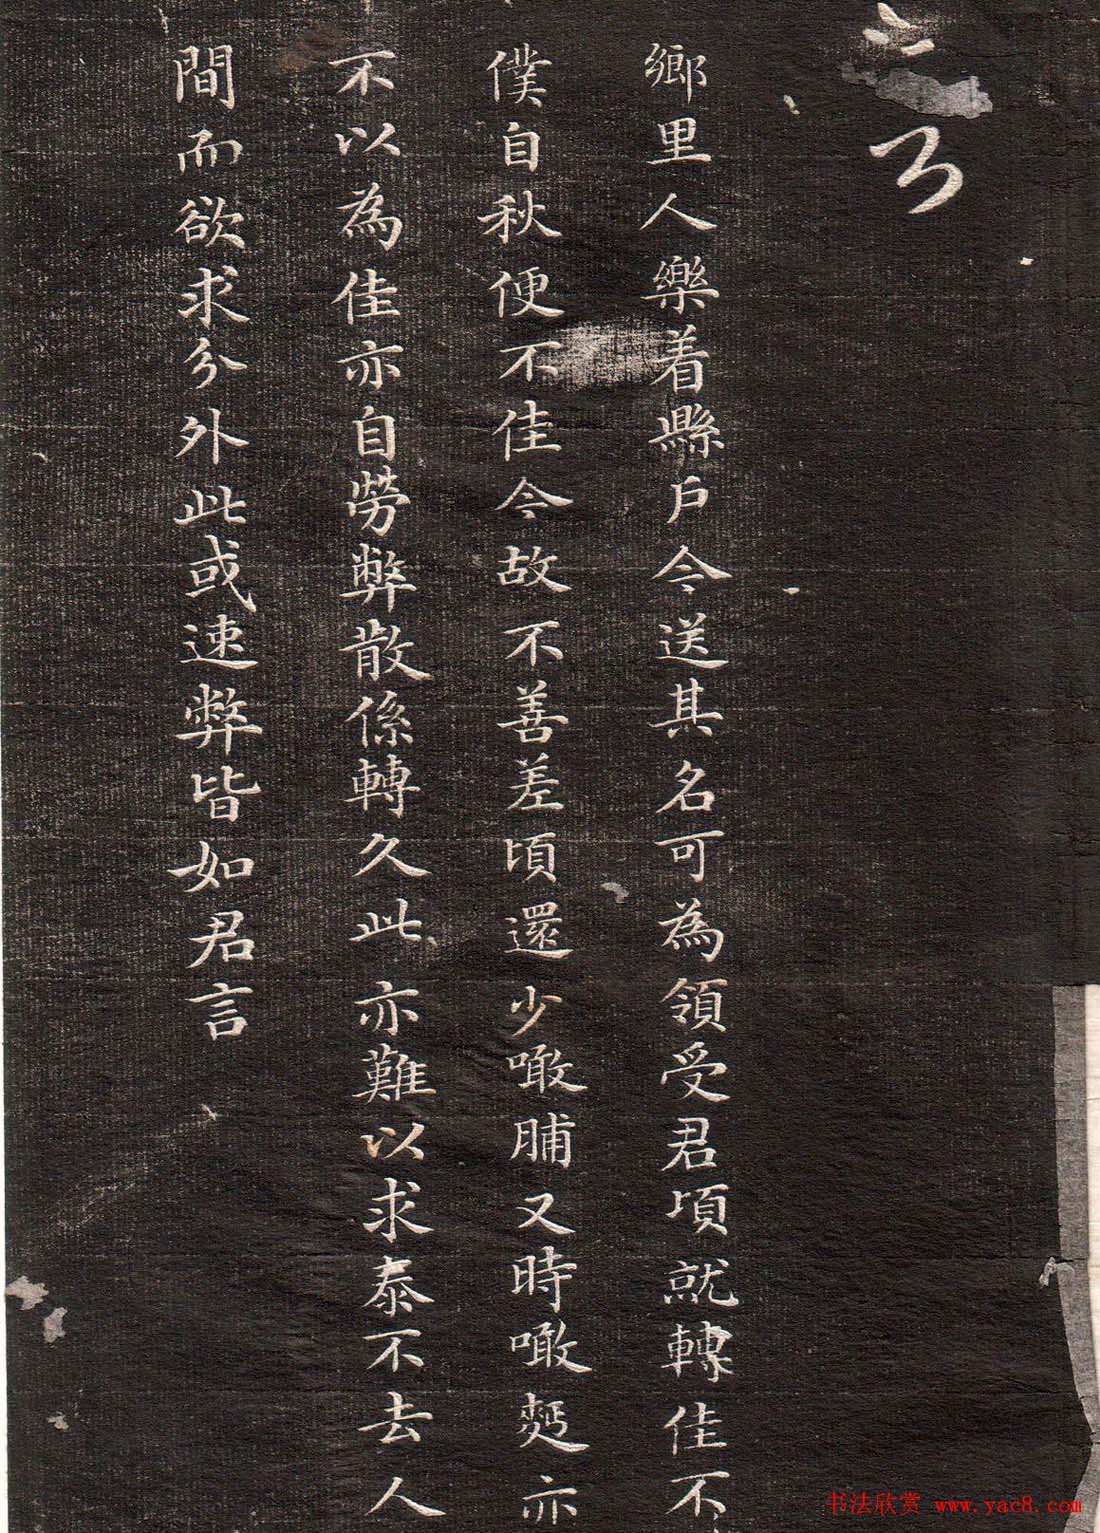 鄉里人樂着縣戶今送其名可為領受君頃就轉佳不
僕自秋便不佳今故不善差頃還少噉脯又時噉麪亦
不以為佳亦自勞弊散係轉久此亦難以求泰不去人
間而欲求分外此或速弊皆如君言
书法欣赏 www.yac8.com